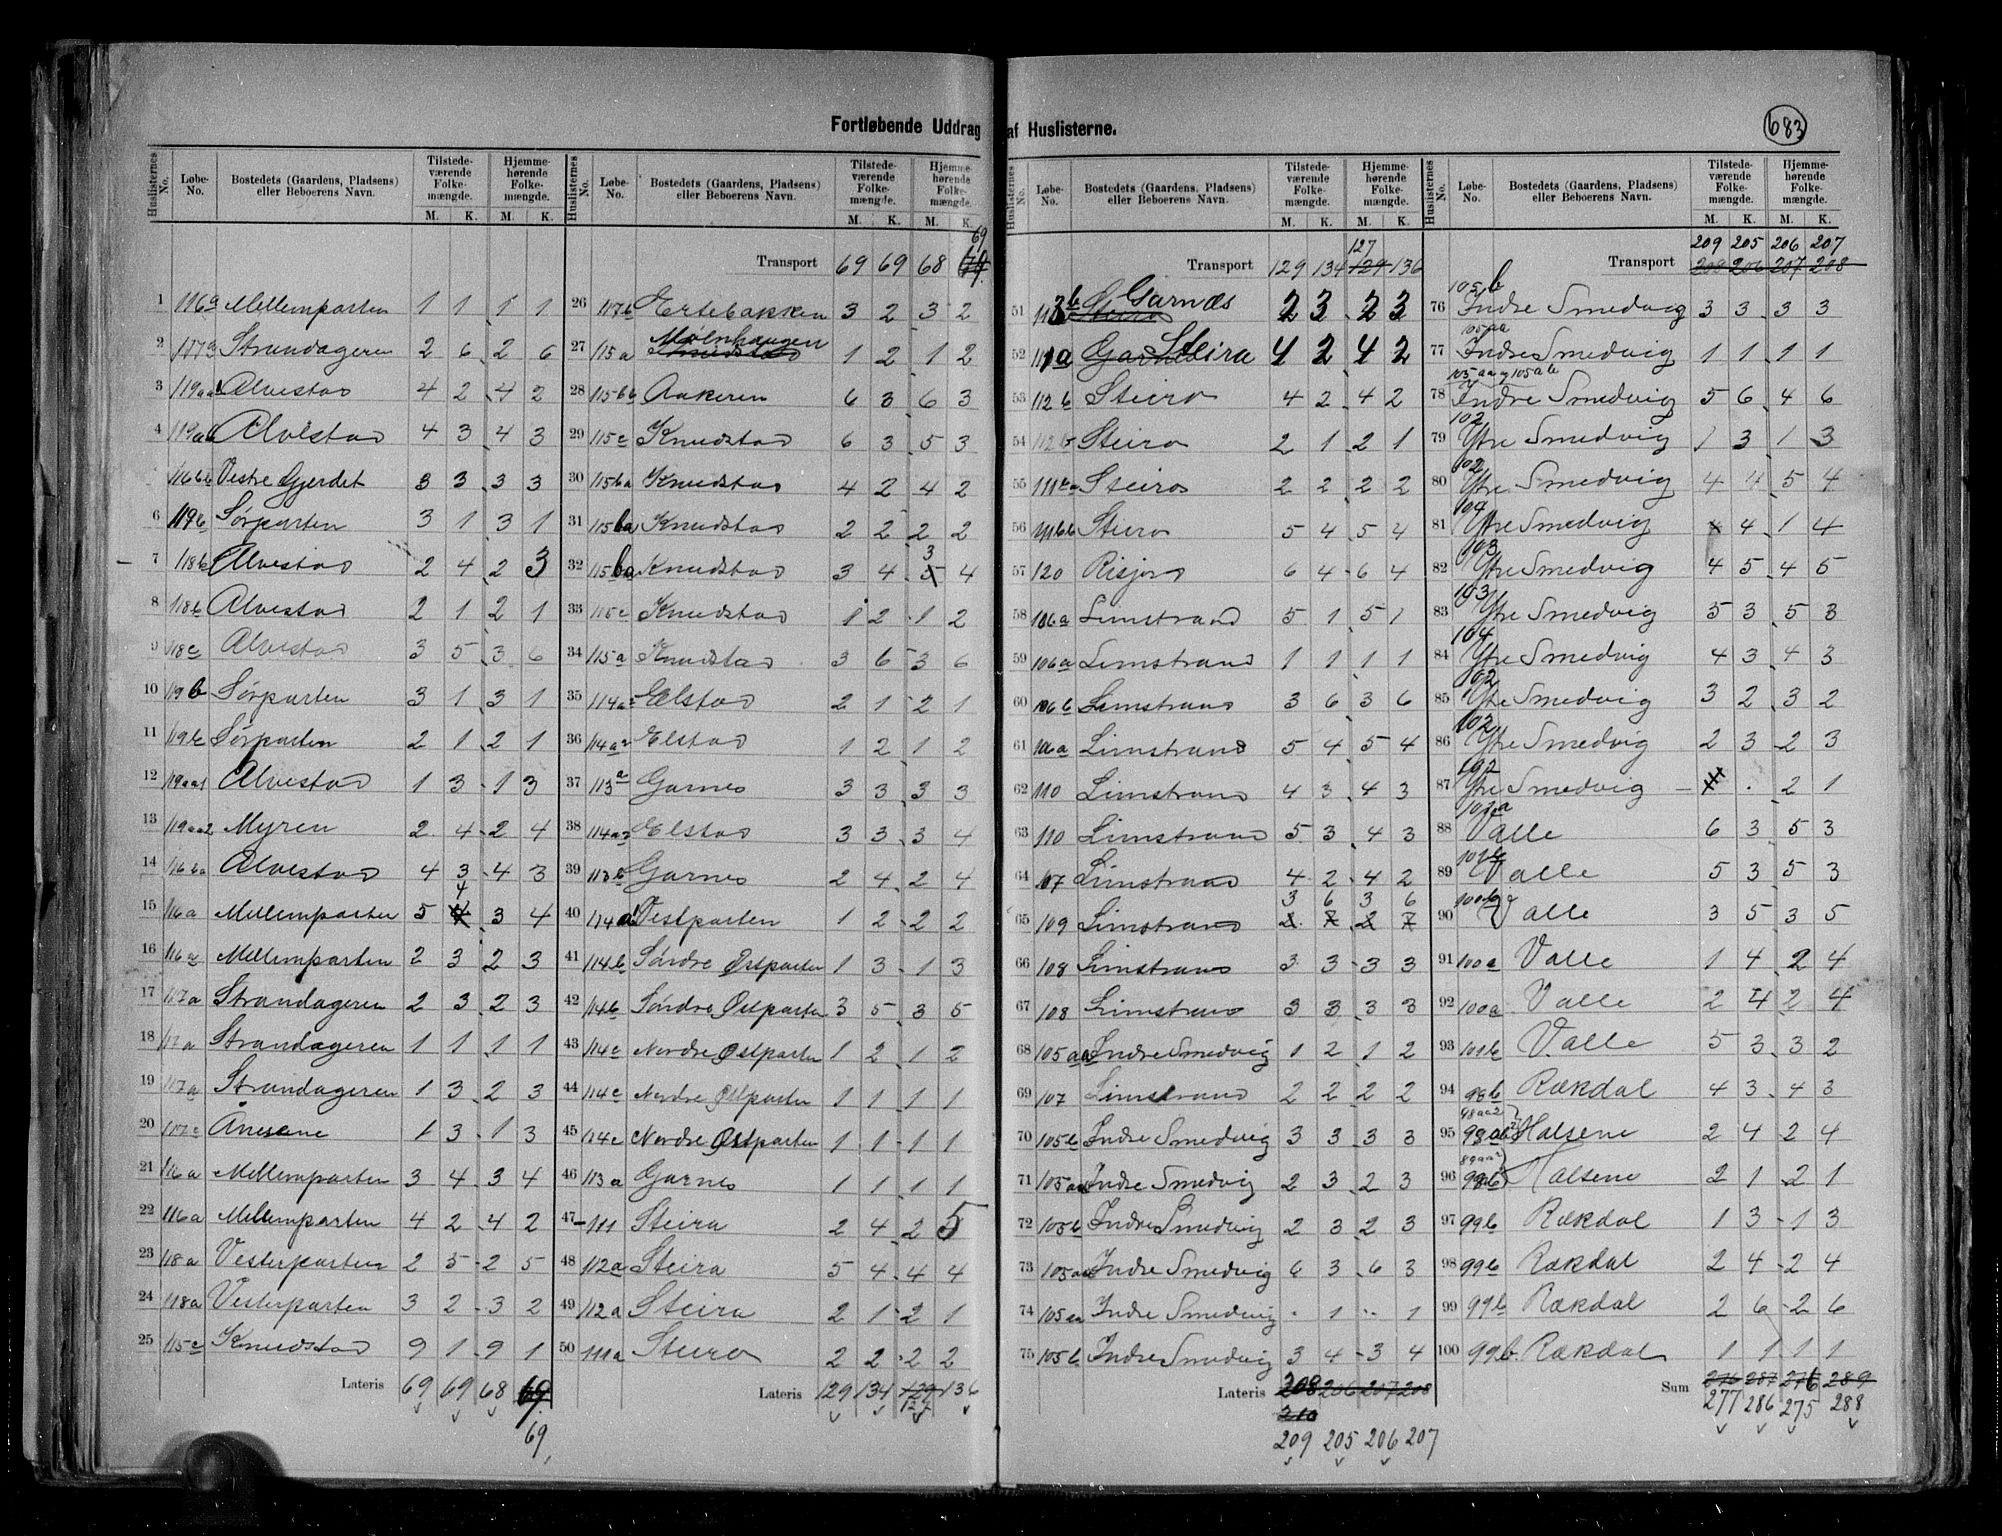 Fortløbende Uddrag af Huslisterne.
683
Huslisternes No. Løbe-No. Bostedets (Gaardens, Pladsens) eller Beboerens Navn. Tilstedeværende Folkemængde. M. K. Hjemmehørende Folkemængde. M. K.
1 116a Mellemparten 1 1 1 1
2 117a Strandageren 2 6 2 6
3 119aa Alvestad 4 2 4 2
4 119aa Alvestad 4 3 4 3
116bb Vestre Gjerdet 3 3 3 3
6 119b Sørparten 3 1 3 1
7 118b Alvestad 2 4 2 3
8 118b Alvestad 2 1 2 1
9 118c Alvestad 3 5 3 6
10 119b Sørparten 3 1 3 1
11 119b Sørparten 2 1 2 1
12 119aa1 Alvestad 1 3 1 3
13 119aa2 Myren 2 4 2 4
14 116ba Alvestad 4 3 4 3
15 116a Mellemparten 5 4 3 4
16 116a Mellemparten 2 3 2 3
17 117a Strandageren 2 3 2 3
18 117a Strandageren 1 1 1 1
19 117a Strandageren 1 3 2 3
20 117c Ånesene 1 3 1 3
21 116a Mellemparten 3 4 3 4
22 116a Mellemparten 4 2 4 2
23 118a Vesterparten 2 5 2 5
24 118a Vesterparten 3 2 3 2
25 115c Knudstad 9 1 9 1
Lateris 69 69 68 69
69
Huslisternes No. Løbe-No. Bostedets (Gaardens, Pladsens) eller Beboerens Navn. Tilstedeværende Folkemængde. M. K. Hjemmehørende Folkemængde. M. K.
Transport 69 69 68 69
26 117b Ertebakken 3 2 3 2
27 115a Mølnhaugen 1 2 1 2
28 115bb Aakeren 6 3 6 3
29 115c Knudstad 6 3 5 3
30 115ba Knudstad 4 2 4 2
31 115ba Knudstad 2 2 2 2
32 115ba Knudstad 3 4 3 4
33 115c Knudstad 1 2 1 2
34 115a Knudstad 3 6 3 6
35 114a2 Elstad 2 1 2 1
36 114a2 Elstad 1 2 1 2
37 113a Garnes 3 3 3 3
38 114a2 Elstad 3 3 3 4
39 113b Garnes 2 4 2 4
40 114a1 Vestparten 1 2 2 2
41 114b Søndre Østparten 1 3 1 3
42 114b Søndre Østparten 3 5 3 5
43 114c Nordre Østparten 1 2 1 2
44 114c Nordre Østparten 1 1 1 1
45 114c Nordre Østparten 1 1 1 1
46 113a Garnes 1 1 1 1
47 111 Steira 2 4 2 5
48 112a Steira 5 4 4 4
49 112a Steira 2 1 2 1
50 111a Steira 2 2 2 2
Lateris 129 134 129 136
127
Huslisternes No. Løbe-No. Bostedets (Gaardens, Pladsens) eller Beboerens Navn. Tilstedeværende Folkemængde. M. K. Hjemmehørende Folkemængde. M. K.
127
Transport 129 134 129 136
51 113b Garnæs 2 3 2 3
52 111a Steira 4 2 4 2
53 112b Steiro 4 2 4 2
54 112b Steiro 2 1 2 1
55 Steiro 2 2 2 2
56 111bb Steiro 5 4 5 4
57 120 Risjord 6 4 6 4
58 106a Limstrand 5 1 5 1
59 106a Limstrand 1 1 1 1
60 106b Limstrand 3 6 3 6
61 106a Limstrand 5 4 5 4
62 110 Limstrand 4 3 4 3
63 110 Limstrand 5 3 4 3
64 107 Limstrand 4 2 4 2
3 6 3 6
65 109 Limstrand 2 7 2 7
66 108 Limstrand 3 3 3 3
67 108 Limstrand 3 3 3 3
68 105aa Indre Smedvig 1 2 1 2
69 107 Limstrand 2 2 2 2
70 105b Indre Smedvig 3 3 3 3
71 105aa Indre Smedvig 2 3 2 3
72 105b Indre Smedvig 2 3 2 3
73 105aa Indre Smedvig 6 3 6 3
74 105aa Indre Smedvig . 1 . 1
75 105b Indre Smedvig 3 4 3 4
Lateris 208 206 207 208
210
209 205 206 207
Huslisternes No. Løbe-No. Bostedets (Gaardens, Pladsens) eller Beboerens Navn. Tilstedeværende Folkemængde. M. K. Hjemmehørende Folkemængde. M. K.
209 205 206 207
Transport 208 206 207 208
76 105b Indre Smedvig 3 3 3 3
77 105aa Indre Smedvig 1 1 1 1
78 105aa og 105ab Indre Smedvig 5 6 4 6
79 102 Ytre Smedvig 1 3 1 3
80 102 Ytre Smedvig 4 4 5 4
81 104 Ytre Smedvig 4 1 4
82 103 Ytre Smedvig 4 5 4 5
83 103 Ytre Smedvig 5 3 5 3
84 104 Ytre Smedvig 4 3 4 3
85 102 Ytre Smedvig 3 2 3 2
86 102 Ytre Smedvig 2 3 2 3
87 102 Ytre Smedvig . 2 1
88 Valle 6 3 5 3
89 101b Valle 5 3 5 3
90 100b Valle 3 5 3 5
91 100a Valle 1 4 2 4
92 100a Valle 2 4 2 4
93 101b Valle 5 3 3 2
94 98b Rækdal 4 3 4 3
95 98aa2 Halsene 2 4 2 4
96 98b Halsene 2 1 2 1
97 99b Rækdal 1 3 1 3
98 99b Rækdal 2 4 2 4
99 99b Rækdal 2 6 2 6
100 99b Rækdal 1 1 1 1
Sum 276 287 276 289
277 286 275 288